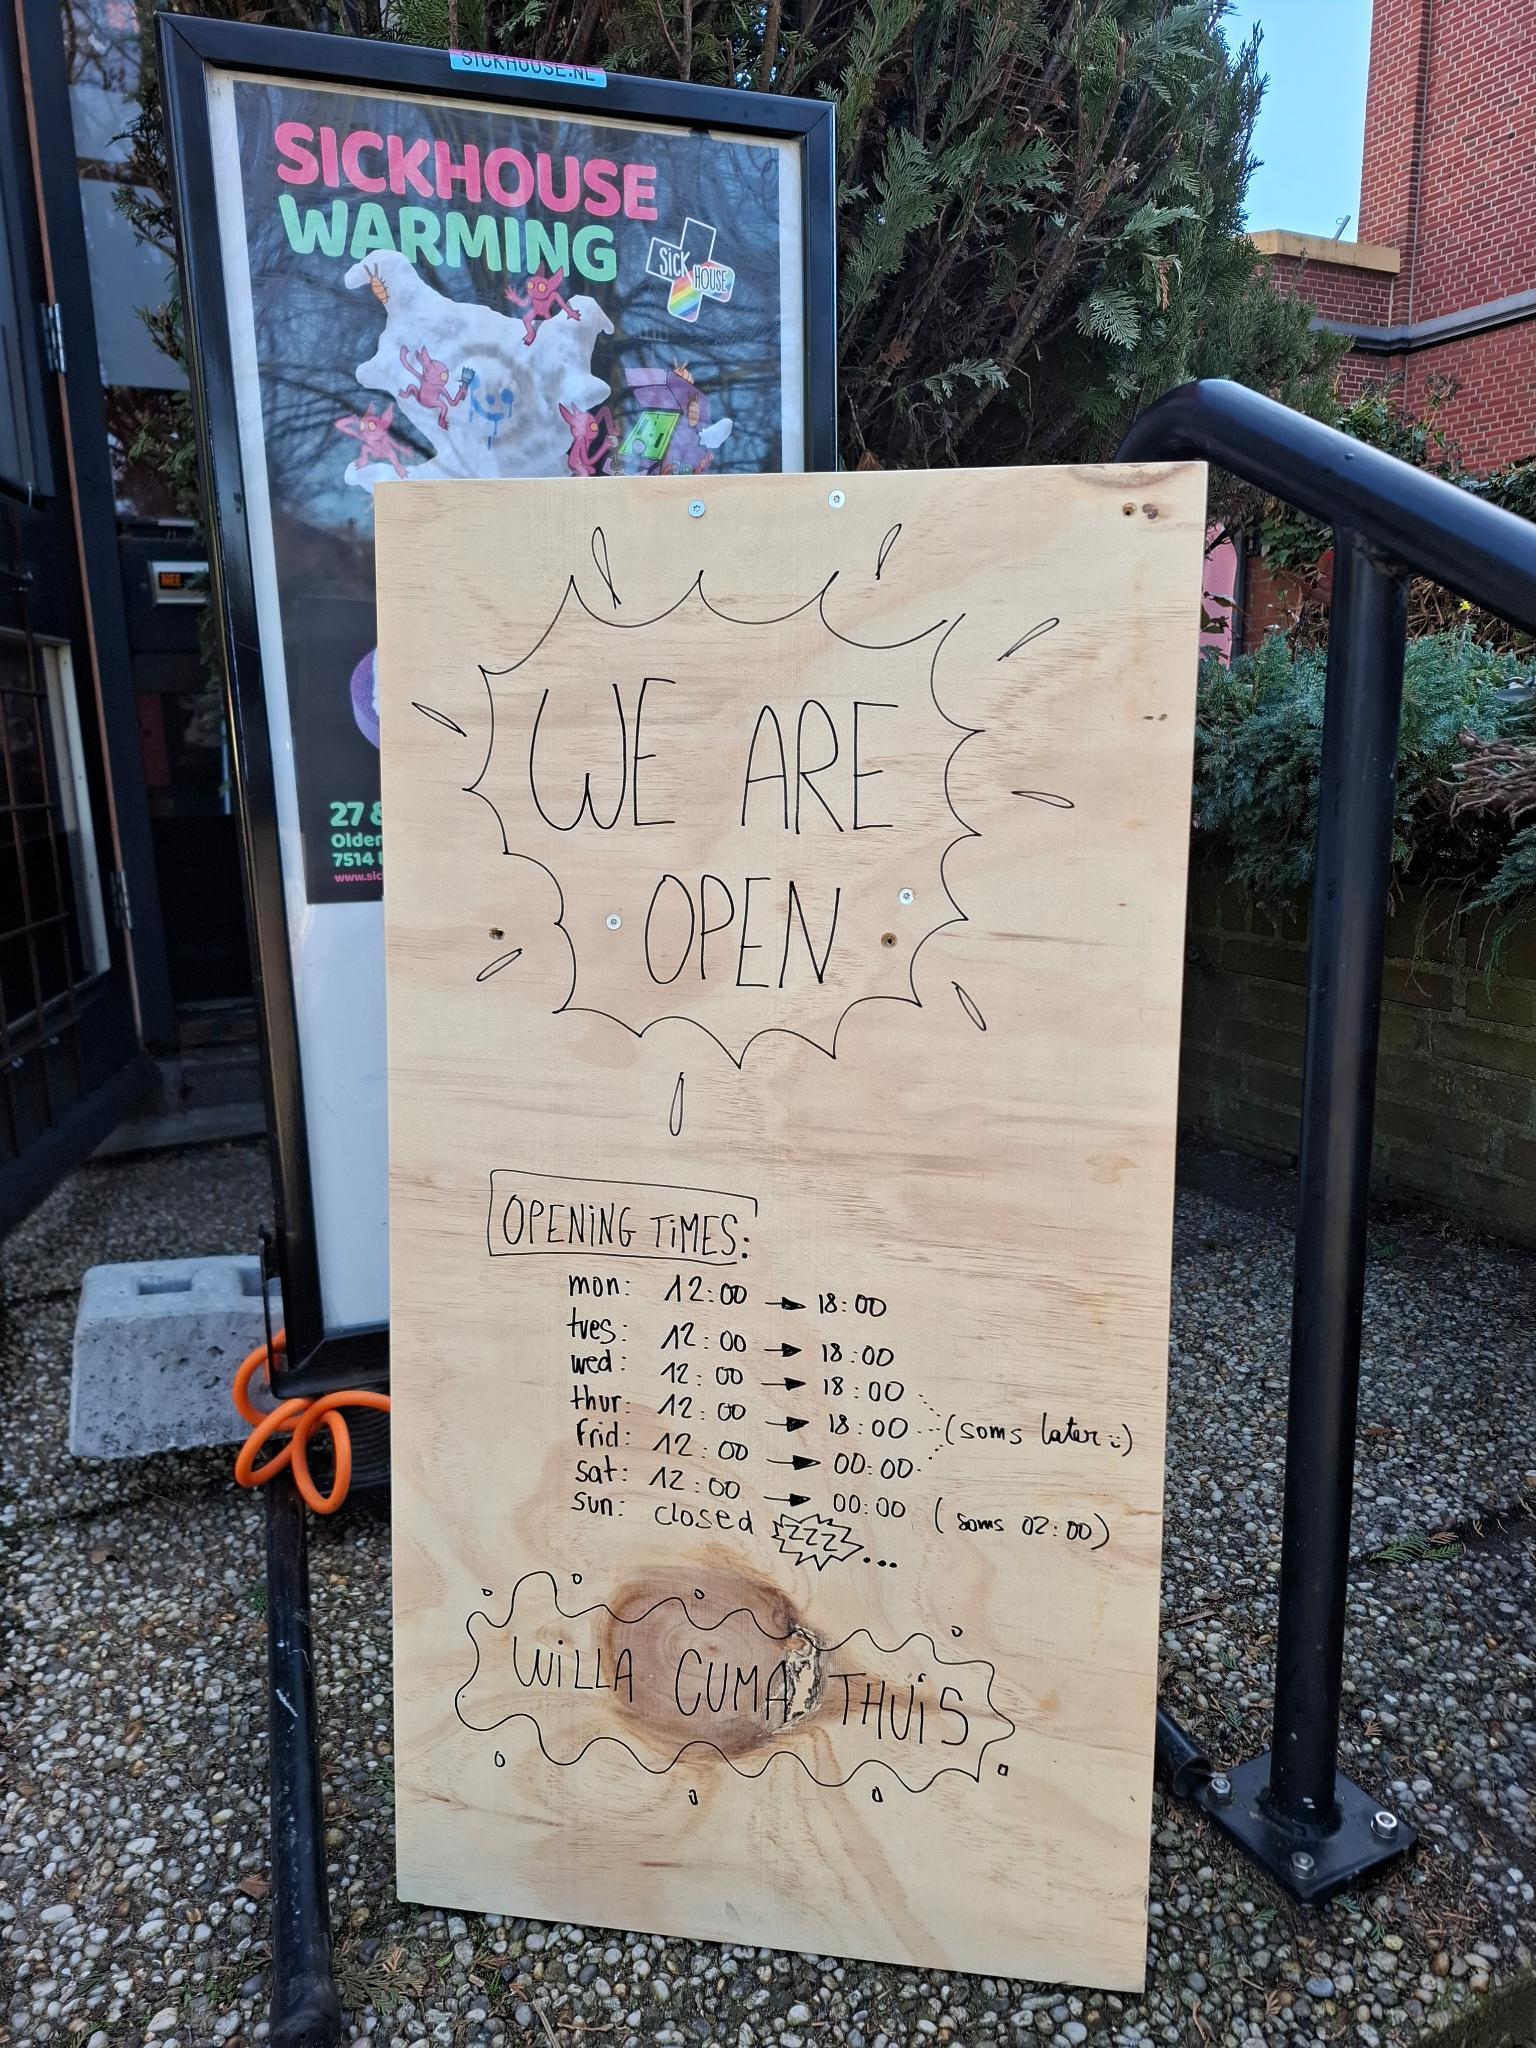 SICKHOUSE.NL
SICKHOUSE
WARMING
SICK
HOUSE
NEE
27 &
7514
WE ARE
OPEN
OPENING TIMES:
mon: 12:00 → 18:00
tues: 12:00 → 18:00
wed: 12:00 → 18:00
thur: 12:00 → 18:00 (soms later :)
Frid: 12:00 → 00:00
sat: 12:00 → 00:00 (soms 02:00)
sun: closed ZZZZ...
WILLA CUMA THUIS